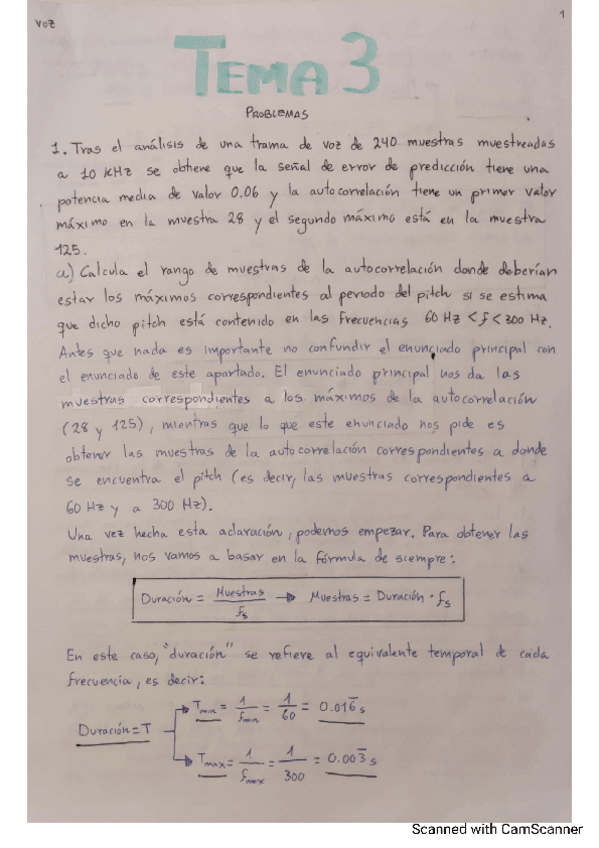 VOZ
1
TEMA 3
PROBLEMAS
1. Tras el análisis de una trama de voz de 240 muestras muestreadas
a 10 KHz se obtiene que la señal de error de predicción tiene una
potencia media de valor 0.06 y la autocorrelación tiene un primer valor
máximo en la muestra 28 y el segundo máximo está en la muestra
125.
a) Calcula el rango de muestras de la autocorrelación donde deberían
estar los máximos correspondientes al periodo del pitch si se estima
que dicho pitch está contenido en las frecuencias 60 Hz < f < 300 Hz.
Antes que nada es importante no confundir el enunciado principal con
el enunciado de este apartado. El enunciado principal nos da las
muestras correspondientes a los máximos de la autocorrelación
(28 y 125), mientras que lo que este enunciado nos pide es
obtener las muestras de la autocorrelación correspondientes a donde
se encuentra el pitch (es decir, las muestras correspondientes a
60 Hz y a 300 Hz).
Una vez hecha esta aclaración, podemos empezar. Para obtener las
muestras, nos vamos a basar en la fórmula de siempre:
Duración = Muestras / fs → Muestras = Duración · fs
En este caso, "duración" se refiere al equivalente temporal de cada
frecuencia, es decir:
Tmin = 1 / fmin = 1 / 60 = 0.016̄ s
Duración = T
Tmax = 1 / fmax = 1 / 300 = 0.003̄ s
Scanned with CamScanner